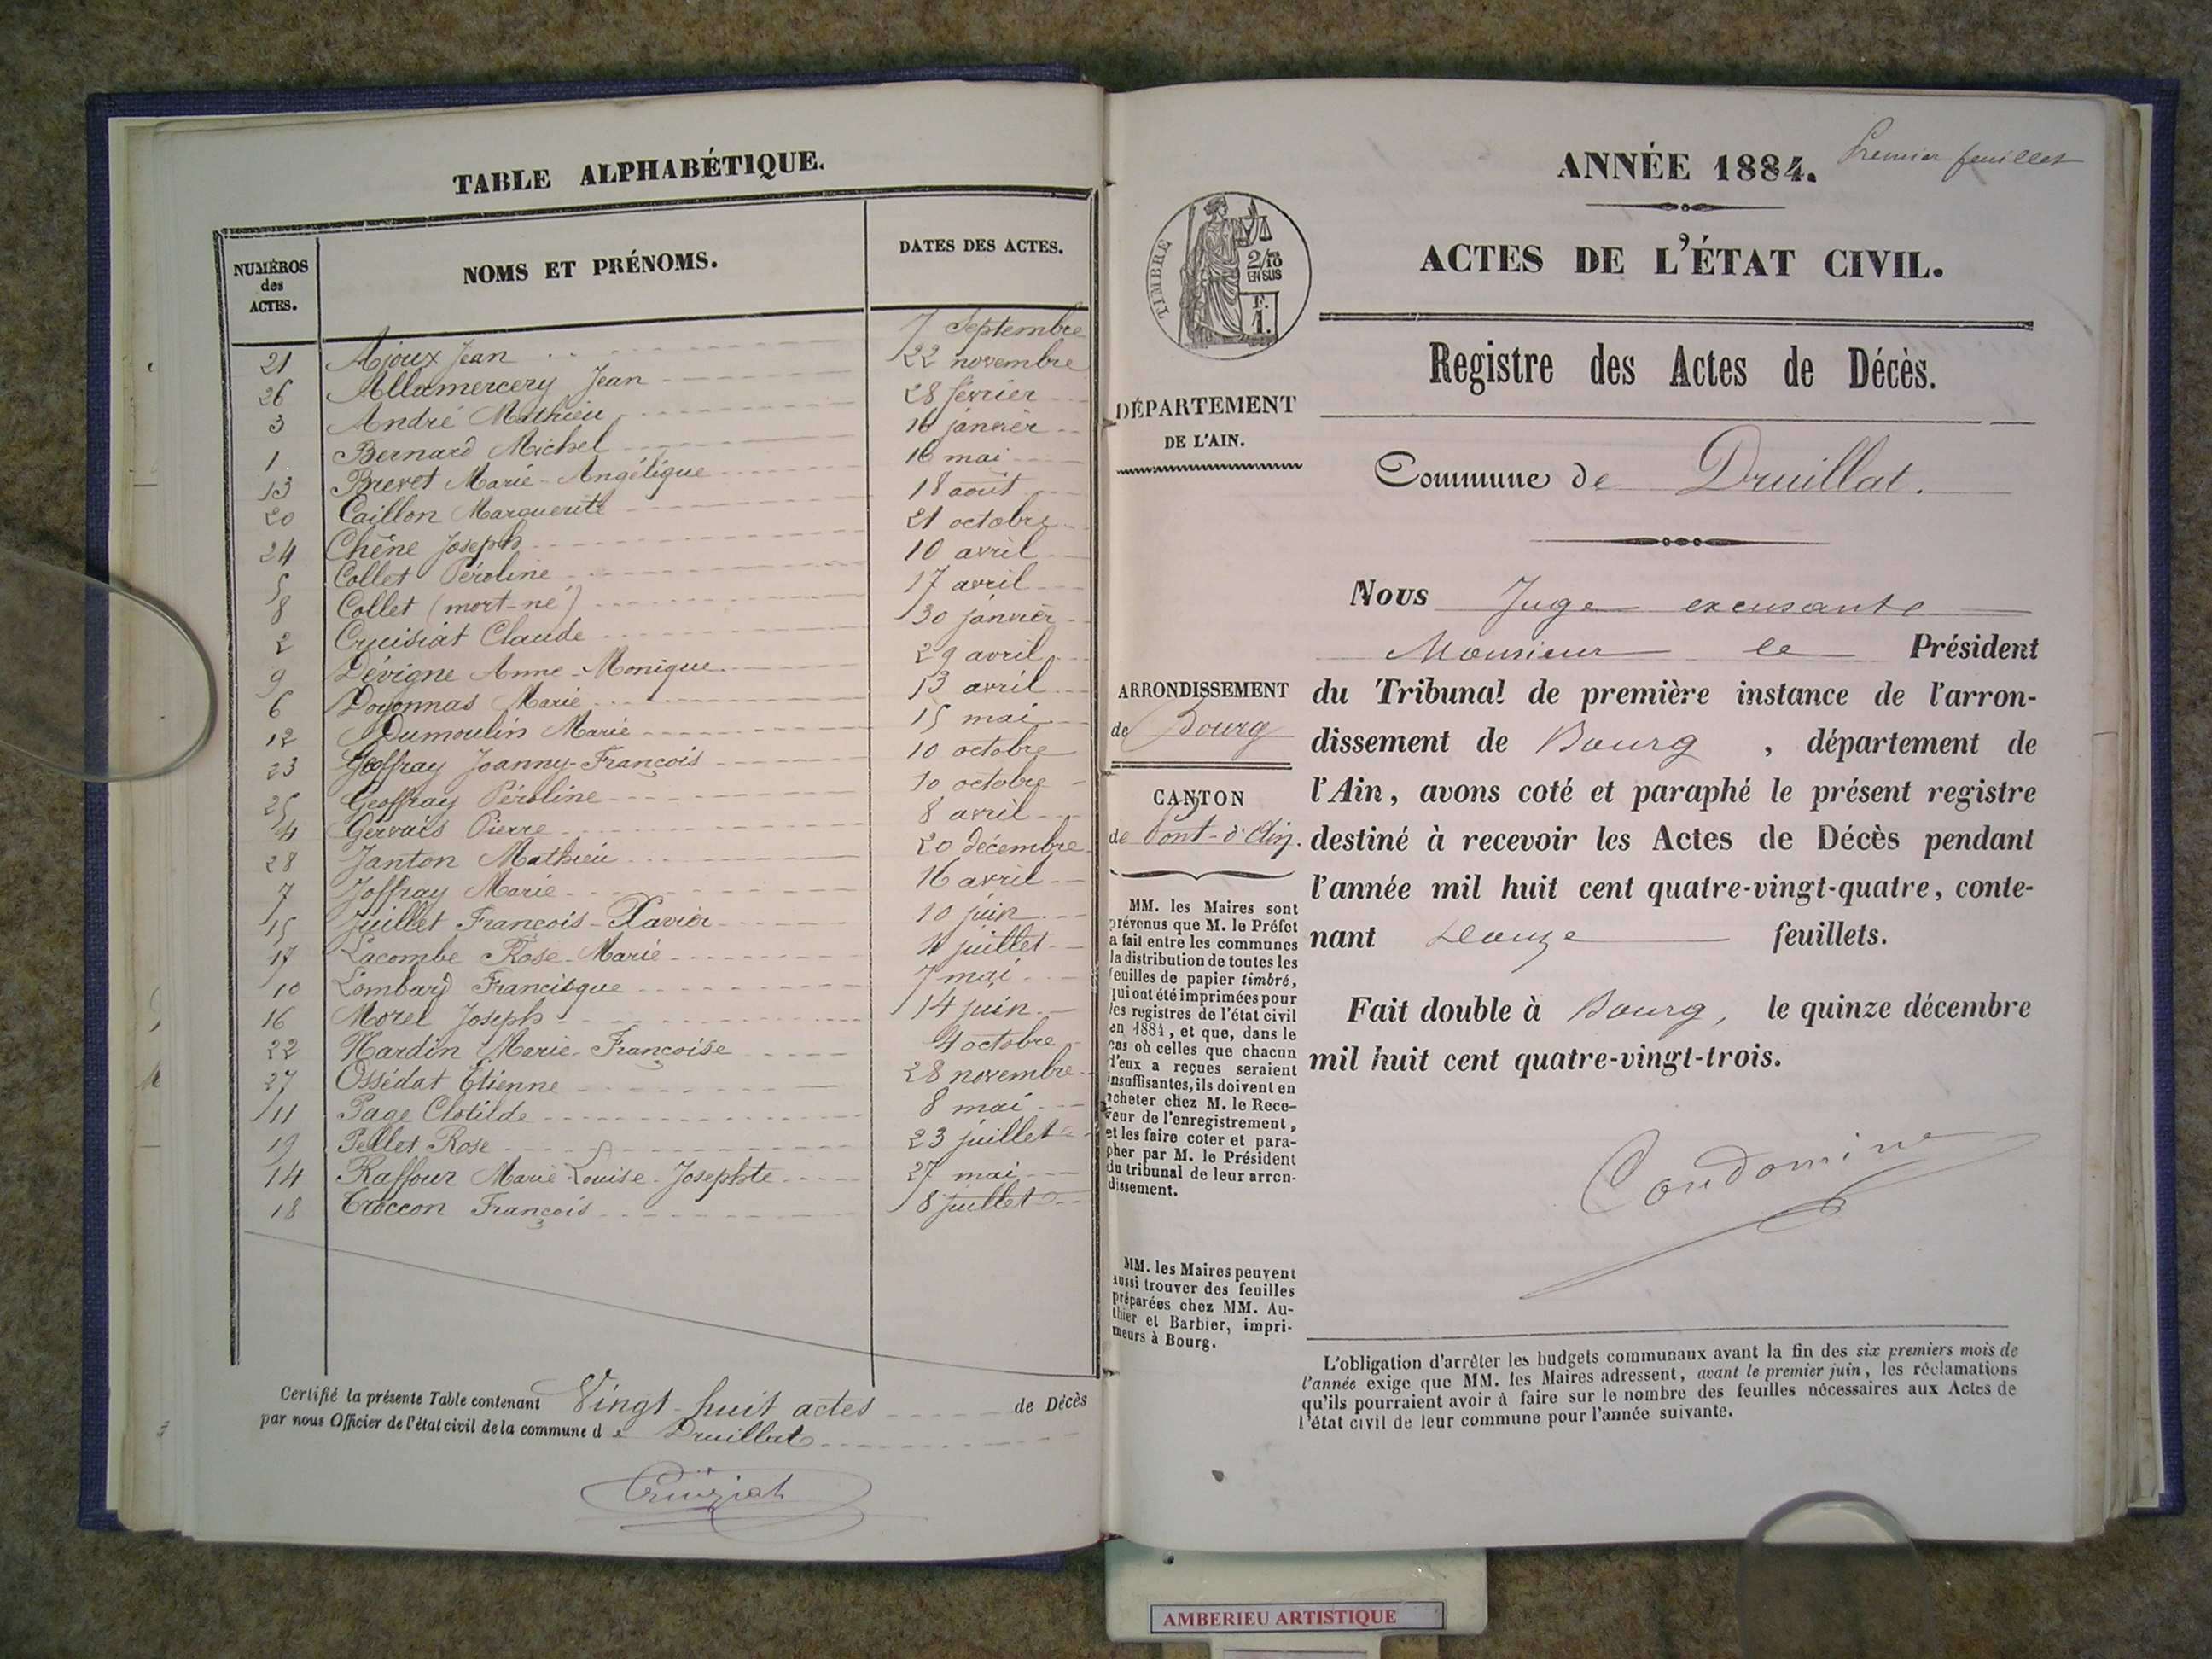 TABLE ALPHABÉTIQUE.
NUMÉROS des ACTES.
NOMS ET PRÉNOMS.
DATES DES ACTES.
21 Ajoux Jean 7 Septembre
26 Allamercery Jean 22 novembre
3 André Mathieu 28 février
1 Bernard Michel 16 janvier
13 Brevet Marie-Angélique 16 mai
20 Caillon Marguerite 18 août
24 Chêne Joseph 21 octobre
5 Collet Péroline 10 avril
8 Collet (mort-né) 17 avril
2 Cruisiat Claude 30 janvier
9 Dévigne Anne-Monique 29 avril
6 Doyonnas Marie 13 avril
12 Dumoulin Marie 15 mai
23 Geoffray Joanny-François 10 octobre
25 Geoffray Péroline 10 octobre
4 Gervais Pierre 8 avril
28 Janton Mathieu 20 décembre
7 Joffray Marie 16 avril
15 Juillet François-Xavier 10 juin
17 Lacombe Rose-Marie 4 juillet
10 Lombard Francisque 7 mai
16 Morel Joseph 14 juin
22 Nardin Marie-Françoise 4 octobre
27 Ossédat Etienne 28 novembre
11 Page Clotilde 8 mai
19 Pellet Rose 23 juillet
14 Raffour Marie-Louise-Josephte 27 mai
18 Troccon François 8 juillet
Certifié la présente Table contenant Vingt-huit actes de Décès
par nous Officier de l'état civil de la commune de Druillat
Cruiziat
Premier feuillet
ANNÉE 1884.
ACTES DE L'ÉTAT CIVIL.
TIMBRE
2/10
EN SUS
F.
1.
Registre des Actes de Décès.
DÉPARTEMENT
DE L'AIN.
Commune de Druillat.
ARRONDISSEMENT
de Bourg
CANTON
de Pont-d'Ain.
MM. les Maires sont
prévenus que M. le Préfet
a fait entre les communes
la distribution de toutes les
feuilles de papier timbré,
qui ont été imprimées pour
les registres de l'état civil
en 1884, et que, dans le
cas où celles que chacun
d'eux a reçues seraient
insuffisantes, ils doivent en
acheter chez M. le Rece-
veur de l'enregistrement,
et les faire coter et para-
pher par M. le Président
du tribunal de leur arron-
dissement.
MM. les Maires peuvent
aussi trouver des feuilles
préparées chez MM. Au-
thier et Barbier, impri-
meurs à Bourg.
Nous Juge excusant
Monsieur le Président
du Tribunal de première instance de l'arron-
dissement de Bourg, département de
l'Ain, avons coté et paraphé le présent registre
destiné à recevoir les Actes de Décès pendant
l'année mil huit cent quatre-vingt-quatre, conte-
nant douze feuillets.
Fait double à Bourg, le quinze décembre
mil huit cent quatre-vingt-trois.
Condomine
L'obligation d'arrêter les budgets communaux avant la fin des six premiers mois de
l'année exige que MM. les Maires adressent, avant le premier juin, les réclamations
qu'ils pourraient avoir à faire sur le nombre des feuilles nécessaires aux Actes de
l'état civil de leur commune pour l'année suivante.
AMBERIEU ARTISTIQUE